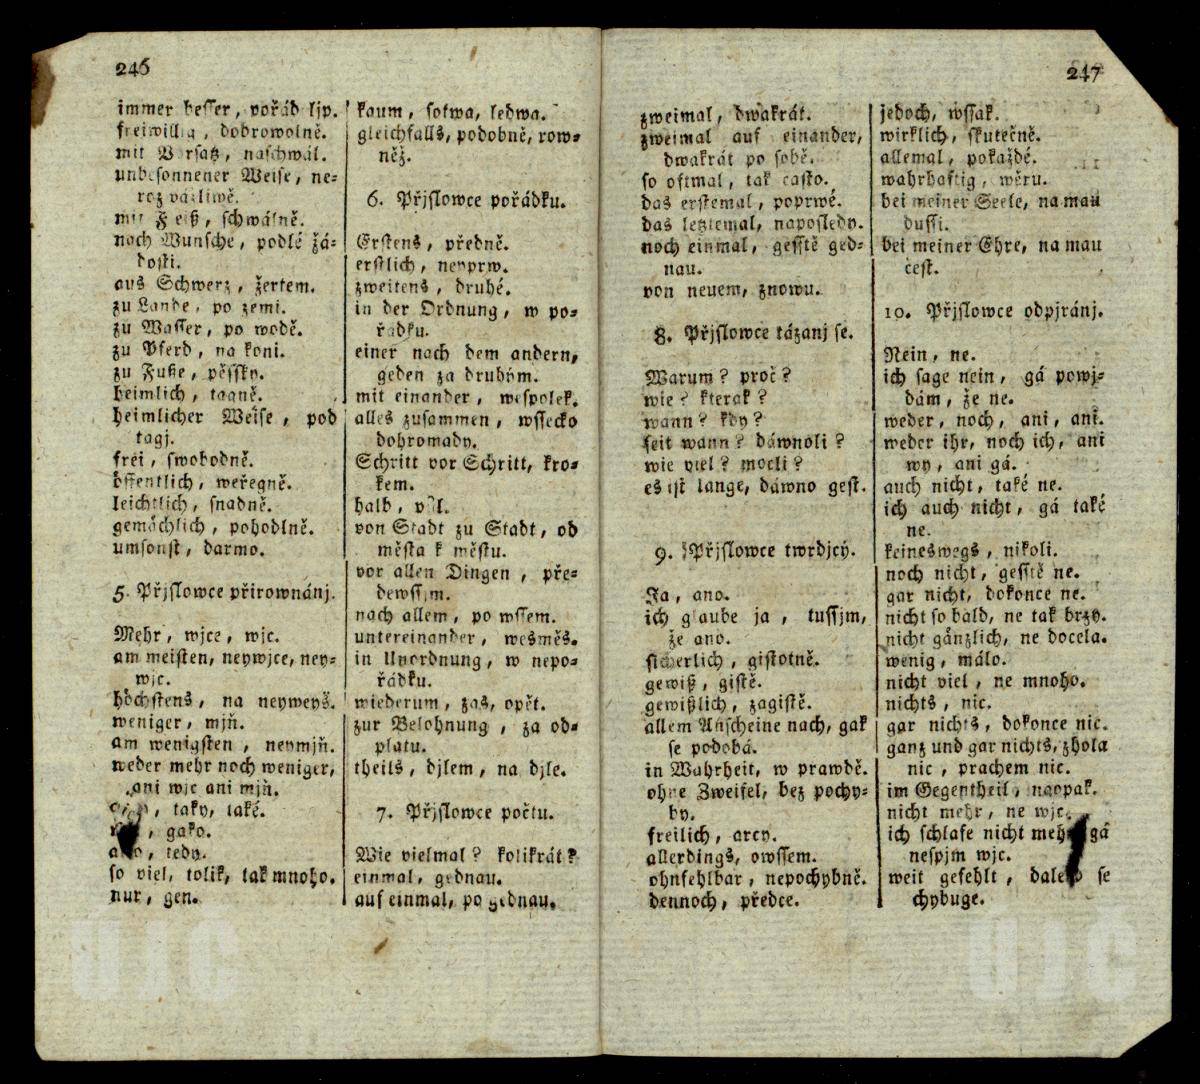 246
immer besser, pořád ljp.
freiwillig, dobrowolně.
mit Vorsatz, naschwál.
unbesonnener Weise, ne=
rozwážliwě.
mit Fleiß, schwálně.
nach Wunsche, podlé žá=
dosti.
aus Scherz, žertem.
zu Lande, po zemi.
zu Wasser, po wodě.
zu Pferd, na koni.
zu Fuße, pěssky.
heimlich, tagně.
heimlicher Weise, pod
tagj.
frei, swobodně.
öffentlich, weřegně.
leichtlich, snadně.
gemächlich, pohodlně.
umsonst, darmo.
5. Přjslowce přirownánj.
Mehr, wjce, wjc.
am meisten, neywjce, ney=
wjc.
höchstens, na neyweyš.
weniger, mjň.
am wenigsten, neymjň.
weder mehr noch weniger,
ani wjc ani mjň.
taky, také.
gako.
also, tedy.
so viel, tolik, tak mnoho.
nur, gen.
kaum, sotwa, ledwa.
gleichfalls, podobně, row=
něž.
6. Přjslowce pořádku.
Erstens, předně.
erstlich, neyprw.
zweitens, druhé.
in der Ordnung, w po=
řádku.
einer nach dem andern,
geden za druhým.
mit einander, wespolek.
alles zusammen, wssecko
dohromady.
Schritt vor Schritt, kro=
kem.
halb, půl.
von Stadt zu Stadt, od
města k městu.
vor allen Dingen, pře=
dewssjm.
nach allem, po wssem.
untereinander, wesměs.
in Unordnung, w nepo=
řádku.
wiederum, zas, opět.
zur Belohnung, za od=
platu.
theils, djlem, na djle.
7. Přjslowce počtu.
Wie vielmal? kolikrát?
einmal, gednau.
auf einmal, po gednau.
247
zweimal, dwakrát.
zweimal auf einander,
dwakrát po sobě.
so oftmal, tak často.
das erstemal, poprwé.
das letztemal, naposledy.
noch einmal, gesstě ged=
nau.
von neuem, znowu.
8. Přjslowce tázanj se.
Warum? proč?
wie? kterak?
wann? kdy?
seit wann? dáwnoli?
wie viel? mocli?
es ist lange, dáwno gest.
9. Přjslowce twrdjcý.
Ja, ano.
ich glaube ja, tussjm,
že ano.
sicherlich, gistotně.
gewiß, gistě.
gewißlich, zagistě.
allem Anscheine nach, gak
se podobá.
in Wahrheit, w prawdě.
ohne Zweifel, bez pochy=
by.
freilich, arcy.
allerdings, owssem.
ohnfehlbar, nepochybně.
dennoch, předce.
jedoch, wssak.
wirklich, skutečně.
allemal, pokaždé.
wahrhaftig, wěru.
bei meiner Seele, na mau
dussi.
bei meiner Ehre, na mau
čest.
10. Přjslowce odpjránj.
Nein, ne.
ich sage nein, gá powj=
dám, že ne.
weder, noch, ani, ani.
weder ihr, noch ich, ani
wy, ani gá.
auch nicht, také ne.
ich auch nicht, gá také
ne.
keineswegs, nikoli.
noch nicht, gesstě ne.
gar nicht, dokonce ne.
nicht so bald, ne tak brzy.
nicht gänzlich, ne docela.
wenig, málo.
nicht viel, ne mnoho.
nichts, nic.
gar nichts, dokonce nic.
ganz und gar nichts, zhola
nic, prachem nic.
im Gegentheil, naopak.
nicht mehr, ne wjc.
ich schlafe nicht mehr, gá
nespjm wjc.
weit gefehlt, daleko se
chybuge.